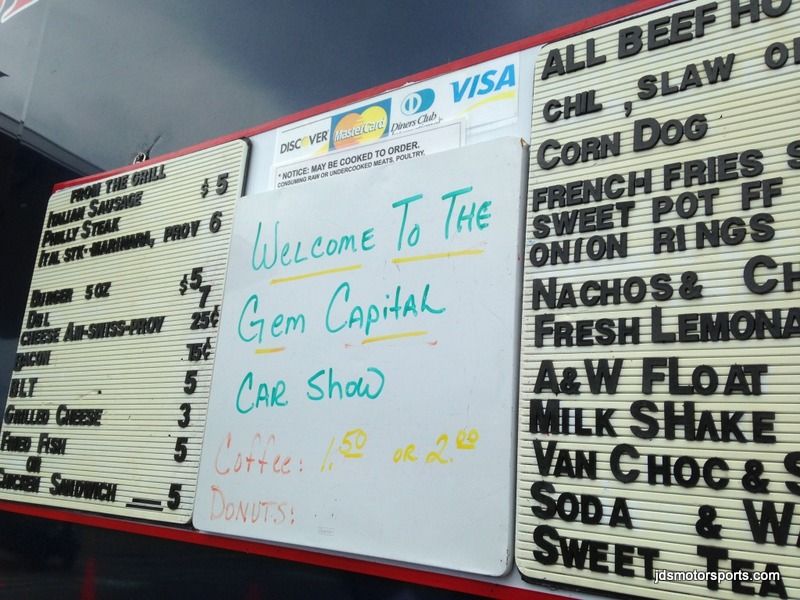 FROM THE GRILL
ITALIAN SAUSAGE $5
PHILLY STEAK
ITAL STK-MARINARA, PROV 6
BURGER 5 OZ $5
DBL 7
CHEESE AM-SWISS-PROV 25¢
BACON 75¢
BLT 5
GRILLED CHEESE 3
FRIED FISH 5
OR
CHICKEN SANDWICH 5
DISCOVER MasterCard Diners Club VISA
* NOTICE: MAY BE COOKED TO ORDER.
CONSUMING RAW OR UNDERCOOKED MEATS, POULTRY,
WELCOME TO THE
Gem Capital
CAR SHOW
Coffee: 1.50 OR 2.00
DONUTS:
ALL BEEF HO
CHIL , SLAW O
CORN DOG
FRENCH FRIES S
SWEET POT FF
ONION RINGS
NACHOS & CH
FRESH LEMONA
A&W FLOAT
MILK SHAKE
VAN CHOC & S
SODA & WA
SWEET TEA
jdsmotorsports.com